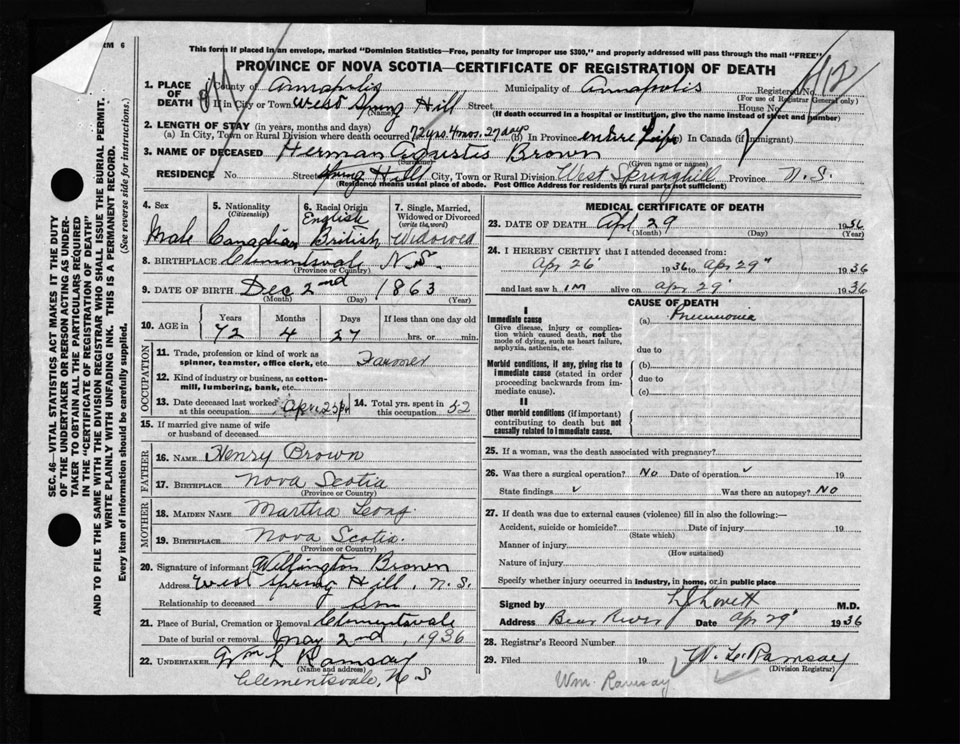 FORM 6
This form if placed in an envelope, marked "Dominion Statistics—Free, penalty for improper use $300," and properly addressed will pass through the mail "FREE"
PROVINCE OF NOVA SCOTIA—CERTIFICATE OF REGISTRATION OF DEATH
412
1. PLACE OF DEATH County of Annapolis Municipality of Annapolis Registered No.
(For use of Registrar General only)
If in City or Town West Spring Hill Street House No.
(Name) (If death occurred in a hospital or institution, give the name instead of street and number)
2. LENGTH OF STAY (in years, months and days)
(a) In City, Town or Rural Division where death occurred 72 yrs. 4 mos. 27 days (b) In Province entire Life (c) In Canada (if immigrant)
3. NAME OF DECEASED Herman Agustis Brown
(Surname) (Given name or names)
RESIDENCE No. Street Spring Hill City, Town or Rural Division West Springhill Province N.S.
(Residence means usual place of abode. Post Office Address for residents in rural parts not sufficient)
4. Sex 5. Nationality (Citizenship) 6. Racial Origin 7. Single, Married, Widowed or Divorced (write the word)
English
Male Canadian British Widowed
8. BIRTHPLACE Clementsvale N.S.
(Province or Country)
9. DATE OF BIRTH Dec 2nd 1863
(Month) (Day) (Year)
10. AGE in Years Months Days If less than one day old
72 4 27 hrs. or min.
OCCUPATION
11. Trade, profession or kind of work as spinner, teamster, office clerk, etc. Farmer
12. Kind of industry or business, as cotton-mill, lumbering, bank, etc.
13. Date deceased last worked at this occupation April 25 14. Total yrs. spent in this occupation 52
15. If married give name of wife or husband of deceased
FATHER
16. NAME Henry Brown
17. BIRTHPLACE Nova Scotia
(Province or Country)
MOTHER
18. MAIDEN NAME Martha Long
19. BIRTHPLACE Nova Scotia.
(Province or Country)
20. Signature of informant Willington Brown
Address West Spring Hill, N.S.
Relationship to deceased Son
21. Place of Burial, Cremation or Removal Clementsvale
Date of burial or removal May 2nd, 1936
22. UNDERTAKER Wm L Ramsay
(Name and address)
Clementsvale, N S
MEDICAL CERTIFICATE OF DEATH
23. DATE OF DEATH Apr 29 1936
(Month) (Day) (Year)
24. I HEREBY CERTIFY that I attended deceased from:
Apr 26 1936 to Apr 29" 1936
and last saw him alive on Apr 29' 1936
CAUSE OF DEATH
I
Immediate cause (a) Pneumonia
Give disease, injury or complication which caused death, not the mode of dying, such as heart failure, asphyxia, asthenia, etc.
due to
Morbid conditions, if any, giving rise to immediate cause (stated in order proceeding backwards from immediate cause).
(b)
due to
(c)
II
Other morbid conditions (if important) contributing to death but not causally related to immediate cause.
25. If a woman, was the death associated with pregnancy?
26. Was there a surgical operation? No Date of operation 19
State findings Was there an autopsy? No
27. If death was due to external causes (violence) fill in also the following:—
Accident, suicide or homicide? Date of injury 19
(State which)
Manner of injury
(How sustained)
Nature of injury
Specify whether injury occurred in industry, in home, or in public place
Signed by LJ Lovett M.D.
Address Bear River Date Apr 29' 1936
28. Registrar's Record Number
29. Filed 19 W. L. Ramsay
(Division Registrar)
Wm. Ramsay
SEC. 46—VITAL STATISTICS ACT MAKES IT THE DUTY
OF THE UNDERTAKER OR PERSON ACTING AS UNDERTAKER TO OBTAIN ALL THE PARTICULARS REQUIRED
IN THE "CERTIFICATE OF REGISTRATION OF DEATH"
AND TO FILE THE SAME WITH THE DIVISION REGISTRAR WHO SHALL ISSUE THE BURIAL PERMIT.
WRITE PLAINLY WITH UNFADING INK. THIS IS A PERMANENT RECORD.
Every item of information should be carefully supplied. (See reverse side for instructions.)